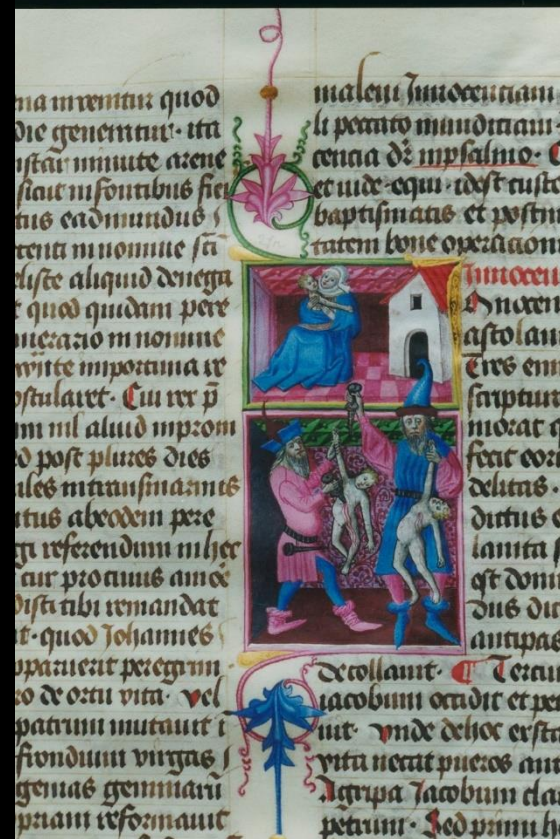 na inuenitur quod
die generentur · ita
instar minute arene
sicut in fontibus fie
tus eadmundus
tenti in nomine sc̄i
liste aliquid denega
quod quidam pere
in nomine
importuna
postularet · Cui rex p̄
m nil aliud in prom
d post plures dies
ales in transmarinis
itus ab eodem pere
gi referendum in hec
tur protinus
tibi remandat
t · quod Johannes
apparuerit peregrin
ro de ortu vita · vel
patrum mutauit i
frondium virgas
gemas gemmaru
priam reformauit
maleui Innocenciam
li peccato mundiciam ·
cencia dr̄ in psalmo · C
et uide · equi · idest iusti
baptismatis et postm
tatem bone operacion
Innocen
Innocen
ascolan
Tres eni
scriptur
morat q
fecit eor
delitas ·
dictus
lanita
qst dom
dus du
antipas
decollauit · Terciu
iacobum occidit et pe
uit · vnde de hoc
necat pueros ant
Agripa Jacobum cla
petrum · Sed primi h